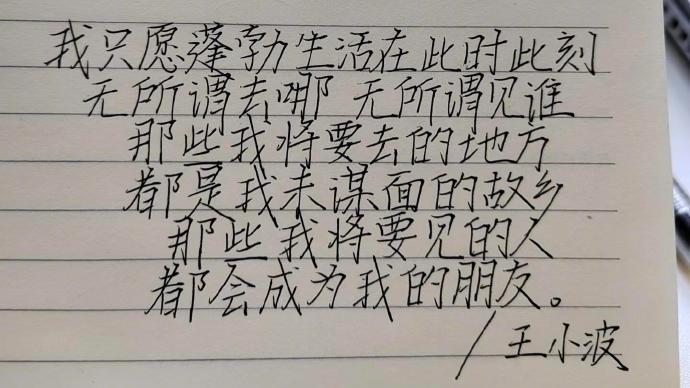 我只愿蓬勃生活在此时此刻
无所谓去哪 无所谓见谁
那些我将要去的地方
都是我未谋面的故乡
那些我将要见的人
都会成为我的朋友。
/王小波